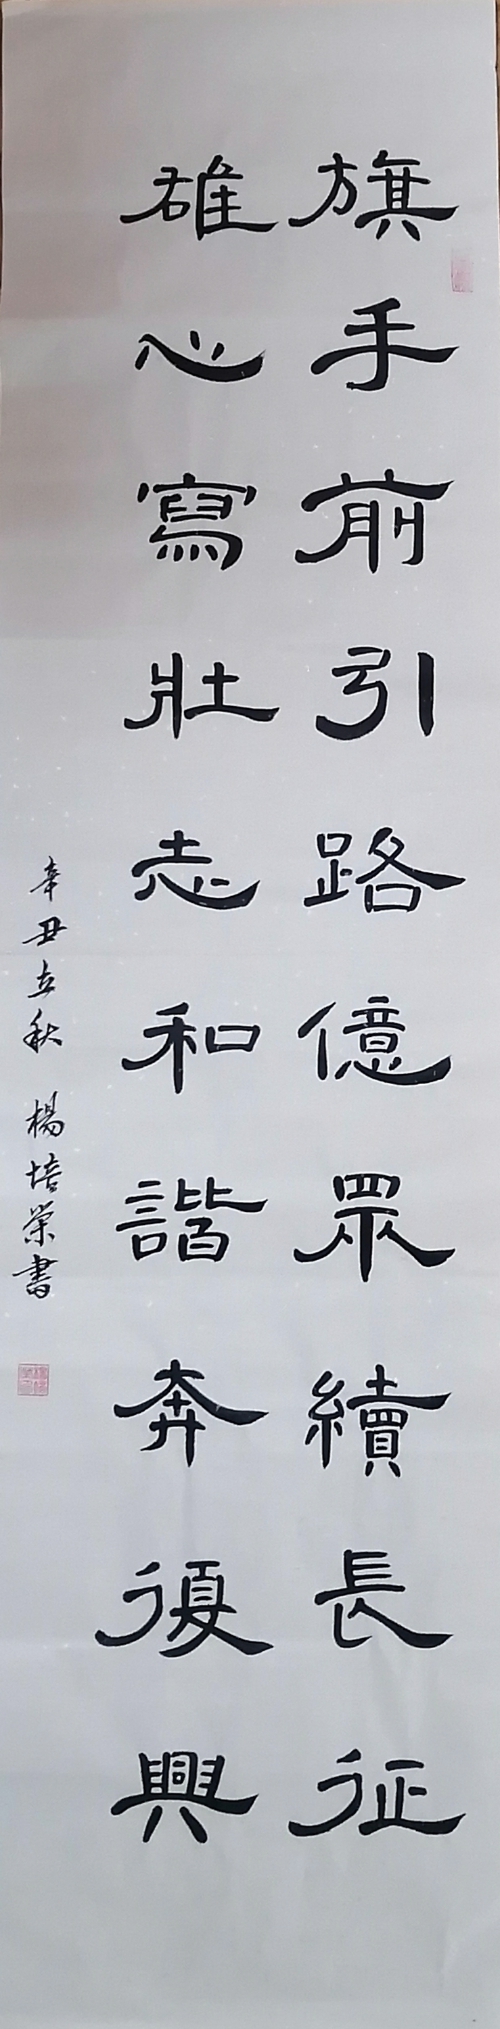 旗手前引路億眾續長征
雄心寫壯志和諧奔復興
辛丑立秋 楊培榮書